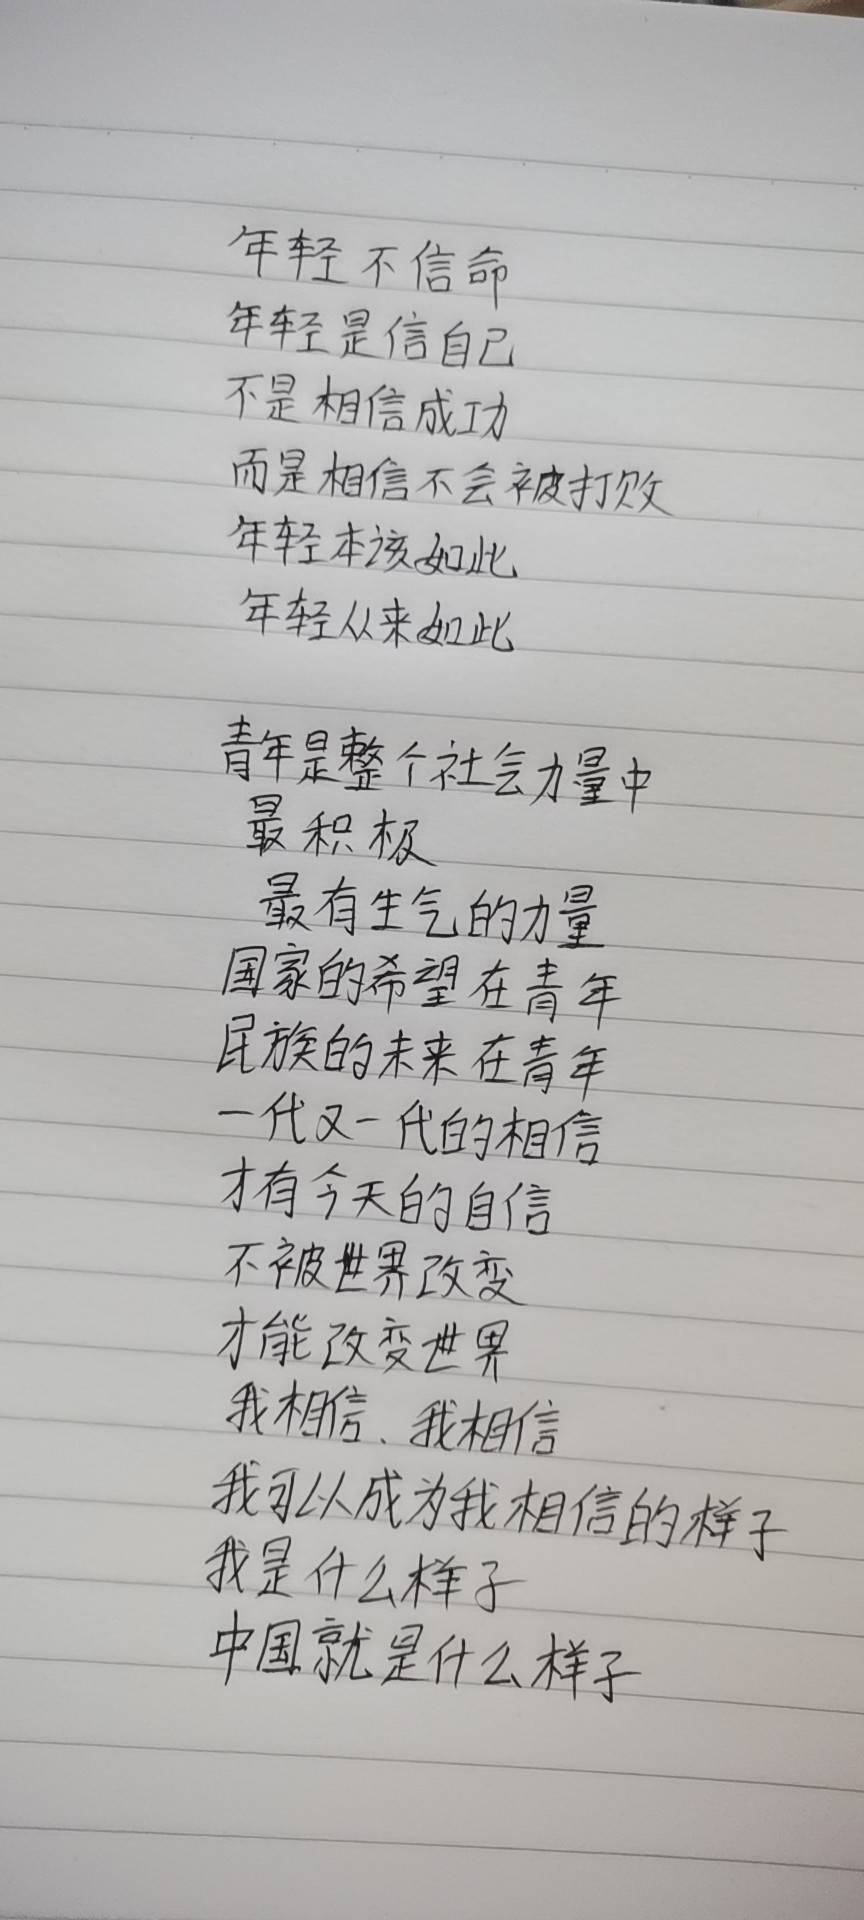 年轻不信命
年轻是信自己
不是相信成功
而是相信不会被打败
年轻本该如此
年轻从来如此
青年是整个社会力量中
最积极
最有生气的力量
国家的希望在青年
民族的未来在青年
一代又一代的相信
才有今天的自信
不被世界改变
才能改变世界
我相信、我相信
我可以成为我相信的样子
我是什么样子
中国就是什么样子